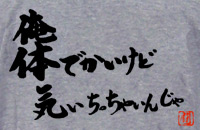 俺
体でかいけど
気いちっちゃいんじゃ